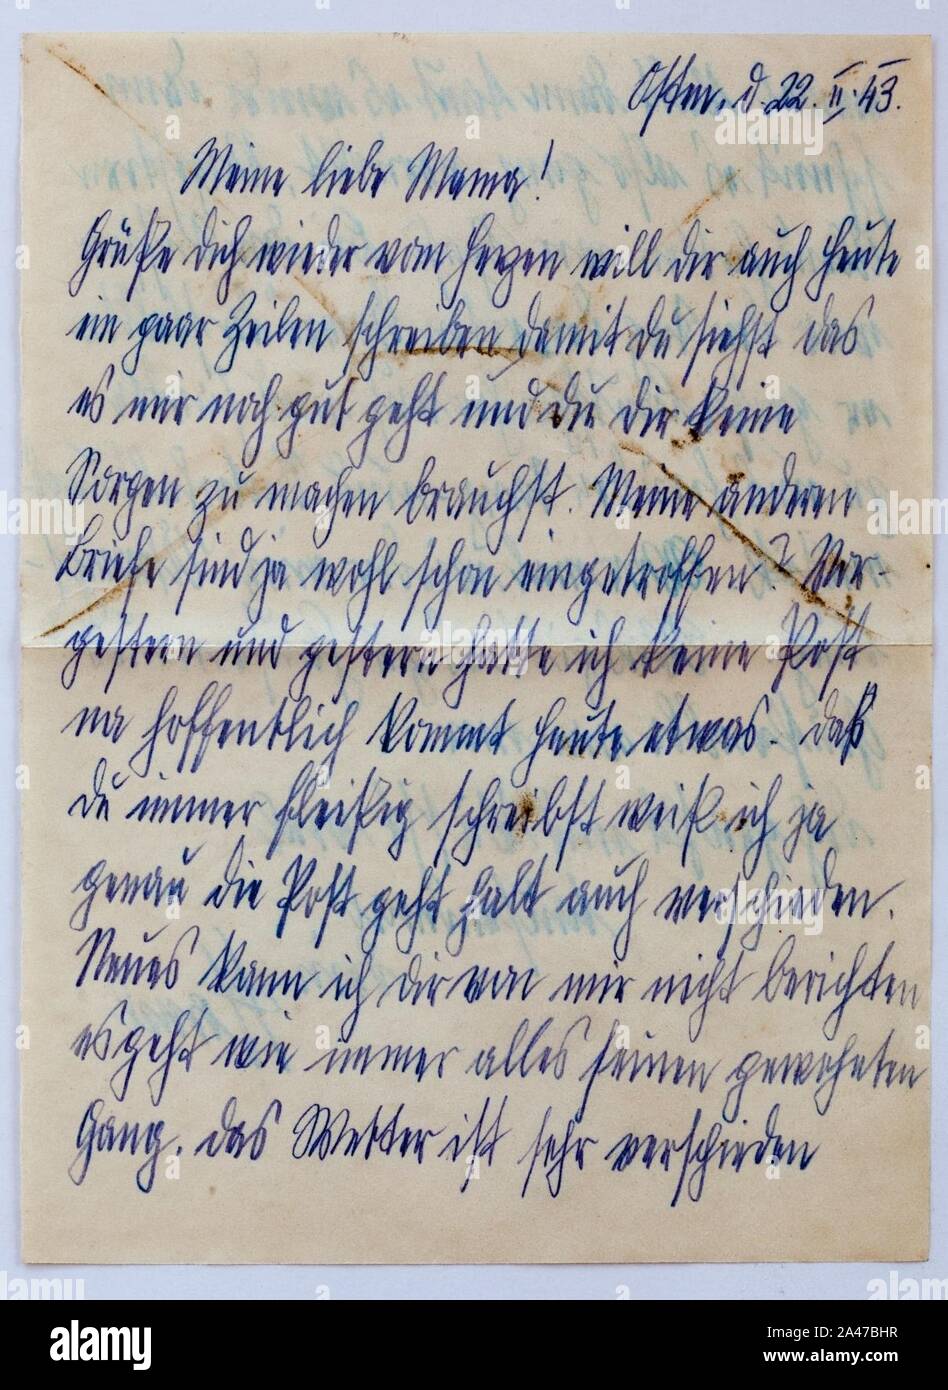 Osten, d. 22. II. 43.
Meine liebe Mama!
Grüße dich wieder vom Herzen will dir auch heute
ein paar Zeilen schreiben damit du siehst das
es mir noch gut geht und du dir keine
Sorgen zu machen brauchst. Meine anderen
Briefe sind ja wohl schon eingetroffen? Vor-
gestern und gestern hatte ich keine Post
na hoffentlich kommt heute etwas. Daß
du immer fleißig schreibst weiß ich ja
genau die Post geht halt auch verschieden.
Neues kann ich dir von mir nicht berichten
es geht wie immer alles seinen gewohnten
Gang. Das Wetter ist sehr verschieden
alamy
Image ID: 2A47BHR
www.alamy.com